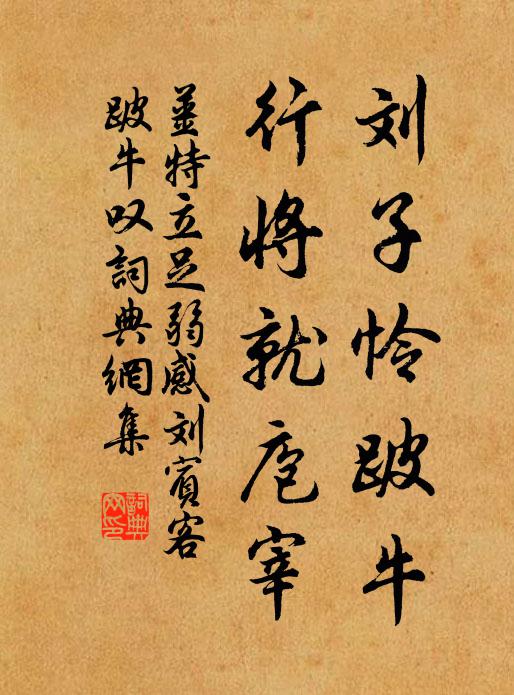 刘子怜跛牛
行将就庖宰
姜特立足弱感刘宾客
跛牛叹詞典網集
詞典
网印